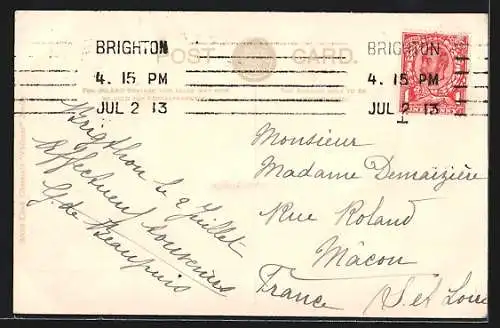 BRIGHTON
4. 15 PM
JUL 2 13
BRIGHTON
4. 15 PM
JUL 2 13
POST CARD.
Brigthon le 2 Juillet
Affectueux souvenirs
G. de Beaupuis
Monsieur
Madame Demaizière
Rue Roland
Mâcon
France
S. et Loire